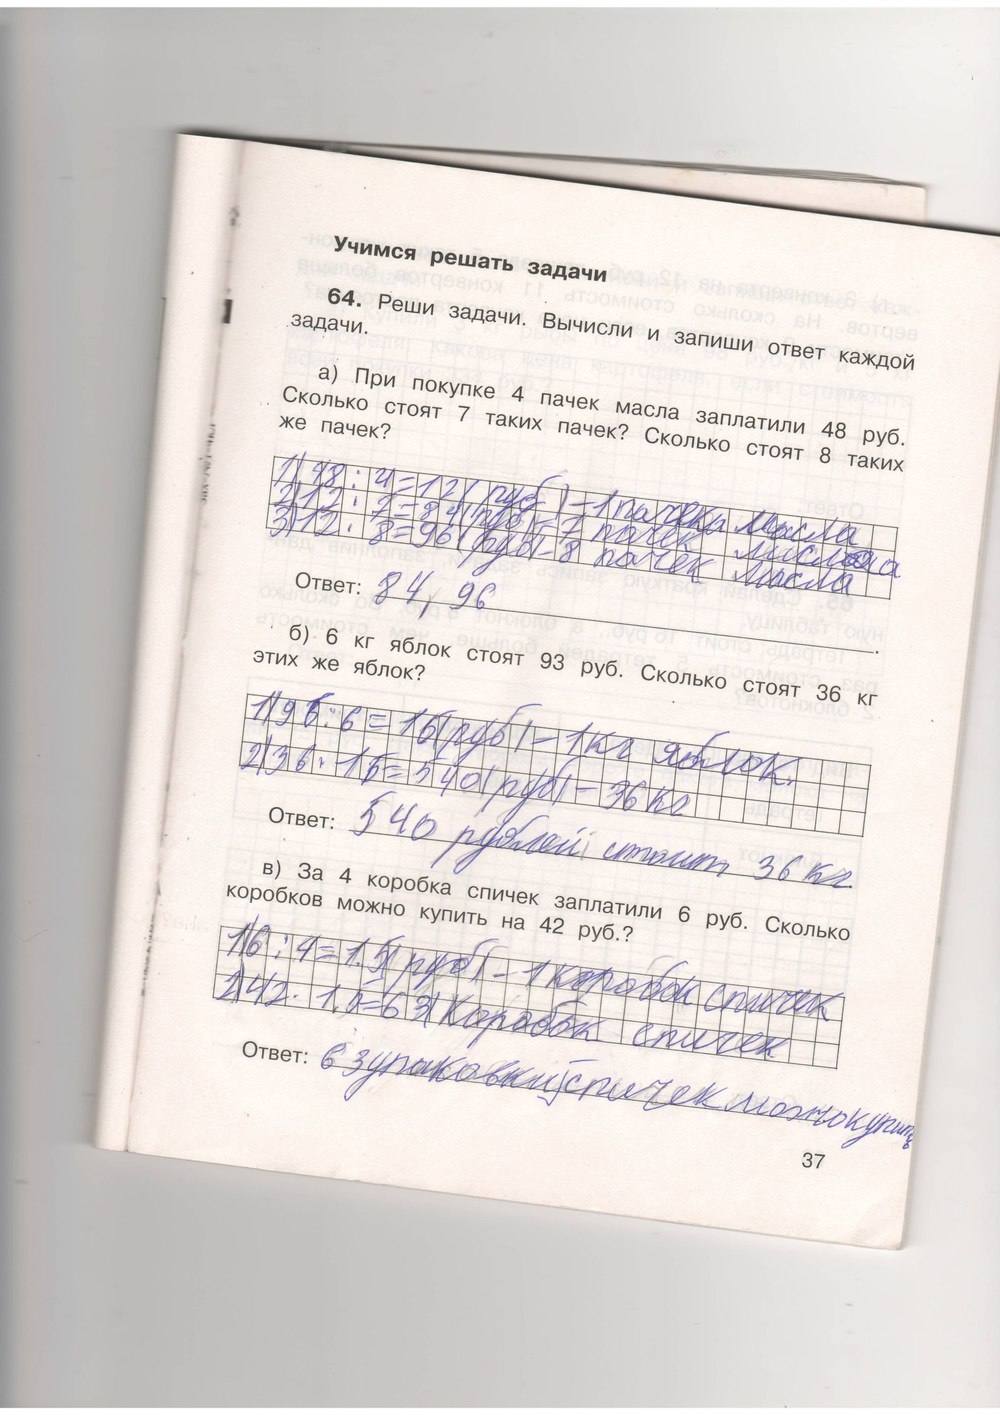 Учимся решать задачи
64. Реши задачи. Вычисли и запиши ответ каждой
задачи.
а) При покупке 4 пачек масла заплатили 48 руб.
Сколько стоят 7 таких пачек? Сколько стоят 8 таких
же пачек?
1) 48 : 4 = 12 (руб) – 1 пачка масла
2) 12 · 7 = 84 (руб) – 7 пачек масла
3) 12 · 8 = 96 (руб) – 8 пачек масла
Ответ: 84, 96
б) 6 кг яблок стоят 93 руб. Сколько стоят 36 кг
этих же яблок?
: 6 = (руб) – 1 кг яблок.
2) 36 · 15 = 540 (руб) – 36 кг
Ответ: 540 рублей стоит 36 кг.
в) За 4 коробка спичек заплатили 6 руб. Сколько
коробков можно купить на 42 руб.?
1) 6 : 4 = 1.5 (руб) – 1 коробок спичек
2) 42 · 1.5 = 63 коробок спичек
Ответ: 63 упаковки спичек можно купить
37